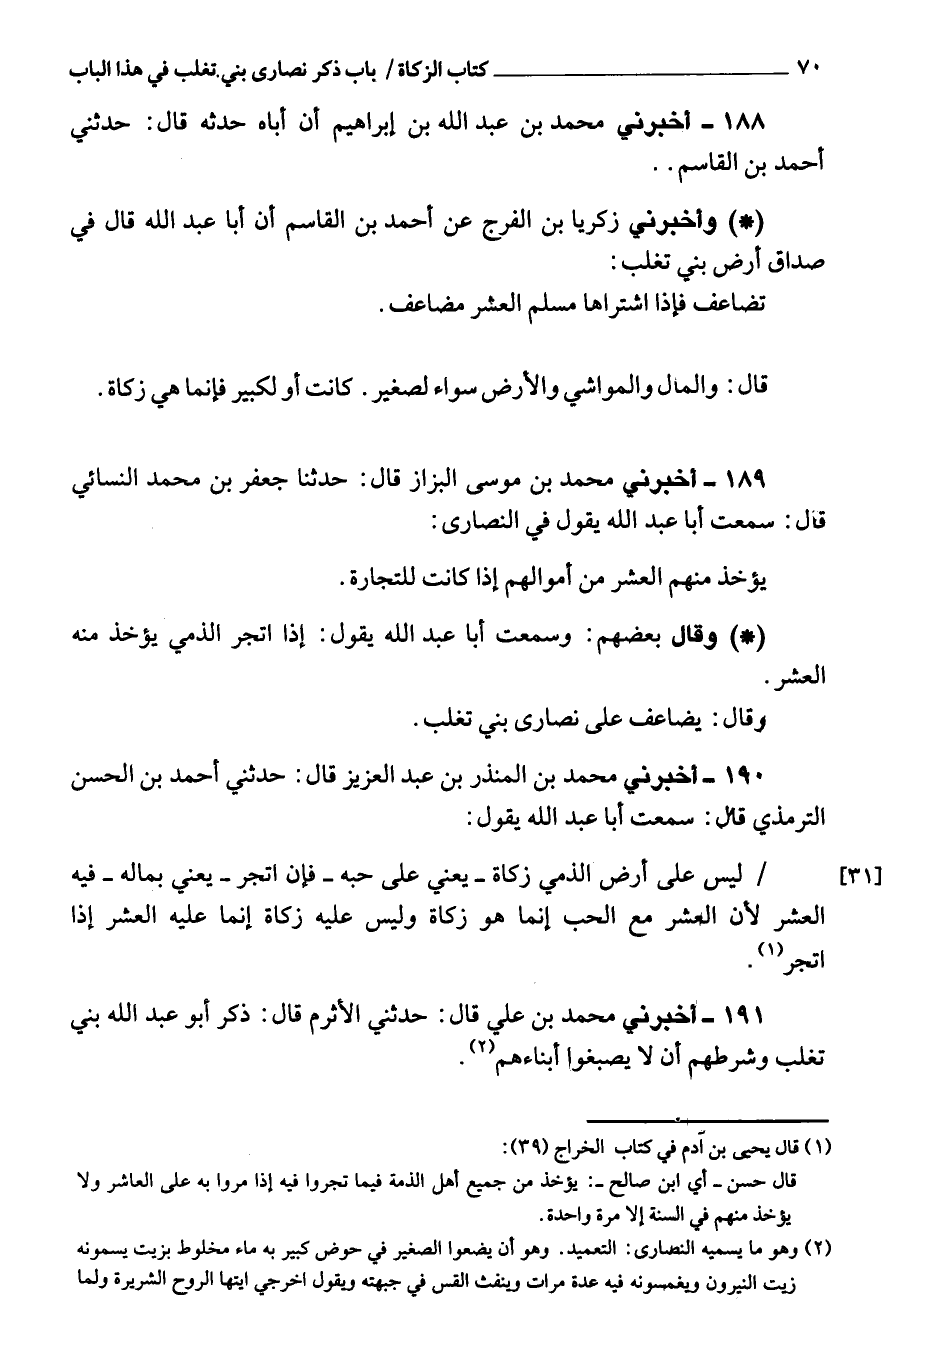 ٧٠ ــــــــــــــــــــــــــــــ كتاب الزكاة / باب ذكر نصارى بني تغلب في هذا الباب
١٨٨ - أخبرني محمد بن عبد الله بن إبراهيم أن أباه حدثه قال: حدثني
أحمد بن القاسم. .
(*) وأخبرني زكريا بن الفرج عن أحمد بن القاسم أن أبا عبد الله قال في
صداق أرض بني تغلب:
تضاعف فإذا اشتراها مسلم العشر مضاعف.
قال: والمال والمواشي والأرض سواء لصغير. كانت أو لكبير فإنما هي زكاة.
١٨٩ - أخبرني محمد بن موسى البزاز قال: حدثنا جعفر بن محمد النسائي
قال: سمعت أبا عبد الله يقول في النصارى:
يؤخذ منهم العشر من أموالهم إذا كانت للتجارة.
(*) وقال بعضهم: وسمعت أبا عبد الله يقول: إذا اتجر الذمي يؤخذ منه
العشر.
وقال: يضاعف على نصارى بني تغلب.
١٩٠ - أخبرني محمد بن المنذر بن عبد العزيز قال: حدثني أحمد بن الحسن
الترمذي قال: سمعت أبا عبد الله يقول:
[٣١] / ليس على أرض الذمي زكاة - يعني على حبه - فإن اتجر - يعني بماله - فيه
العشر لأن العشر مع الحب إنما هو زكاة وليس عليه زكاة إنما عليه العشر إذا
اتجر(١).
١٩١ - أخبرني محمد بن علي قال: حدثني الأثرم قال: ذكر أبو عبد الله بني
تغلب وشرطهم أن لا يصبغوا أبناءهم(٢).
(١) قال يحيى بن آدم في كتاب الخراج (٣٩):
قال حسن - أي ابن صالح -: يؤخذ من جميع أهل الذمة فيما تجروا فيه إذا مروا به على العاشر ولا
يؤخذ منهم في السنة إلا مرة واحدة.
(٢) وهو ما يسميه النصارى: التعميد. وهو أن يضعوا الصغير في حوض كبير به ماء مخلوط بزيت يسمونه
زيت النيرون ويغمسونه فيه عدة مرات وينفث القس في جبهته ويقول اخرجي ايتها الروح الشريرة ولما